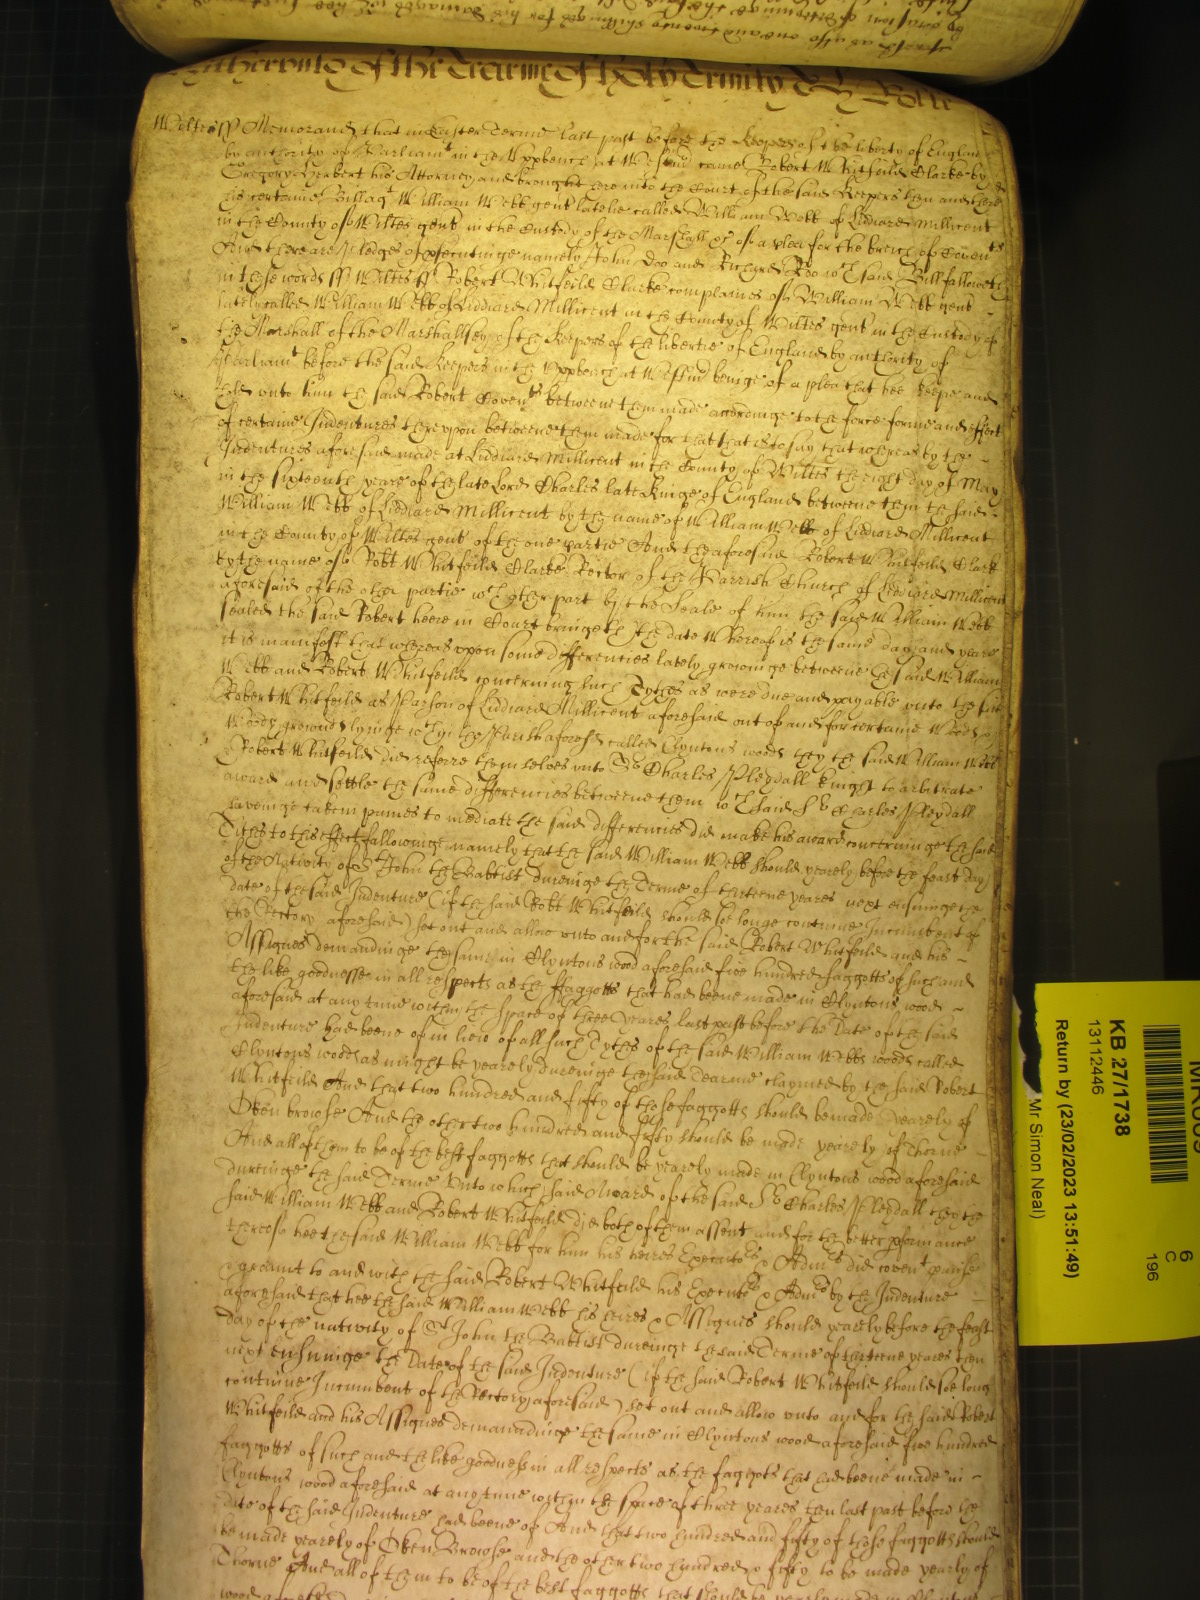 as also one and twenty shillings for his damages
of the Tearme of holy Trinity
Wiltes ss Memorand that in Easter Terme last past before the Keepers of the liberty of England
by authority of Parliamt in the Uppbench at Westmr came Robert Whitfeild Clarke by
Gregory Herbert his Attorney and brought here into the Court of the said Keepers then and there
his certaine Bill agt William Webb gent latelie called William Webb of Liddiard Millicent
in the County of Wiltes gent in the Custody of the Marshall &c of a plea for the breach of Covent
And there are pledges of psecutinge namely John Doo and Richard Roo wch said Bill followeth
in these words ss Wiltes ss Robert Whitfeild Clarke complaines of William Webb gent
lately called William Webb of Liddiard Millicent in the County of Wiltes gent in the Custody of
the Marshall of the Marshallsey of the Keepers of the libertie of England by authority of
Parliamt before the said Keepers in the Uppbench at Westmr beinge of a plea that hee keepe and
hold unto him the said Robert Covents betweene them made accordinge to the force forme and effect
of certaine Indentures thereupon betweene them made for that that is to say that whereas by the
Indentures aforesaid made at Liddiard Millicent in the County of Wiltes the eight day of May
in the sixteenth yeare of the late Lord Charles late Kinge of England betweene them the said
William Webb of Liddiard Millicent by the name of William Webb of Liddiard Millicent
in the County of Wiltes gent of the one partie And the aforesaid Robert Whitfeild Clark
by the name of Robt Whitfeild Clarke Rector of the Parrish Church of Liddiard Millicent
aforesaid of the other partie wch other part wth the Seale of him the said William Webb
sealed the said Robert heere in Court bringeth the date whereof is the same day and yeare
it is manifest that whereas upon some differencies lately growinge betweene the said William
Webb and Robert Whitfeild concerning such Tythes as were due and payable unto the said
Robert Whitfeild as Parson of Liddiard Millicent aforesaid out of and for certaine Woods &
Woody grounds lyinge wthin the Parish aforesd called Clyntons woods they the said William Webb
& Robert Whitfeild did referre themselves unto Sr Charles Pleydall knight to arbitrate
award and settle the same differencies betweene them wch said Sr Charles Pleydall
haveinge taken paines to mediate the said differencies did make his award concerninge the said
Tithes to this effect followinge namely that the said William Webb should yearely before the feast day
of the Nativity of St John the Baptist dureinge the Terme of thirteene yeares next ensuinge the
date of the said Indenture (if the said Robt Whitfeild should soe longe continue Incumbent of
the Rectory aforesaid) set out and allow unto and for the said Robert Whitfeild and his
Assignes demandinge the same in Clyntons wood aforesaid five hundred faggotts of such and
the like goodnesse in all respects as the ffaggotts that had beene made in Clyntons wood
aforesaid at any time within the space of three yeares last past before the Date of the said
Indenture had beene of in liew of all such Tythes of the said William Webbs woods called
Clyntons woods as might be yearely dureinge the said Tearme claymed by the said Robert
Whitfeild And that two hundred and fifty of these faggotts should be made yearely of
Oken browse And the other two hundred and fifty should be made yearely of Thorne
And all of them to be of the best faggotts that should be yearely made in Clyntons wood aforesaid
dureinge the said Terme Unto which said Award of the said Sr Charles Pleydall they the
said William Webb and Robert Whitfeild did both of them assent and for the better pformance
thereof hee the said William Webb for him his heires Executors & Admrs did covent pmise
& graunt to and with the said Robert Whitfeild his Executrs & Admrs by the Indenture
aforesaid that hee the said William Webb his heires & Assignes should yearely before the feast
day of the nativity of St John the Baptist dureinge the said Terme of thirteene yeares then
next ensuinge the Date of the said Indenture (if the said Robert Whitfeild should soe long
continue Incumbent of the Rectory aforesaid) set out and allow unto and for the said Robert
Whitfeild and his Assignes demandinge the same in Clyntons wood aforesaid five hundred
faggotts of such and the like goodness in all respects as the faggots that had beene made in
Clyntons wood aforesaid at any time within the space of three yeares then last past before the
date of the said Indenture had beene of And that two hundred and fifty of those faggotts should
be made yearely of Oken Browse and the other two hundred & fifty to be made yearely of
Thorne And all of them to be of the best faggotts that should be yearely made in Clyntons
KB 27/1738
13112446
Return by (23/02/2023 13:51:49)
Mr Simon Neal)
6
C
196